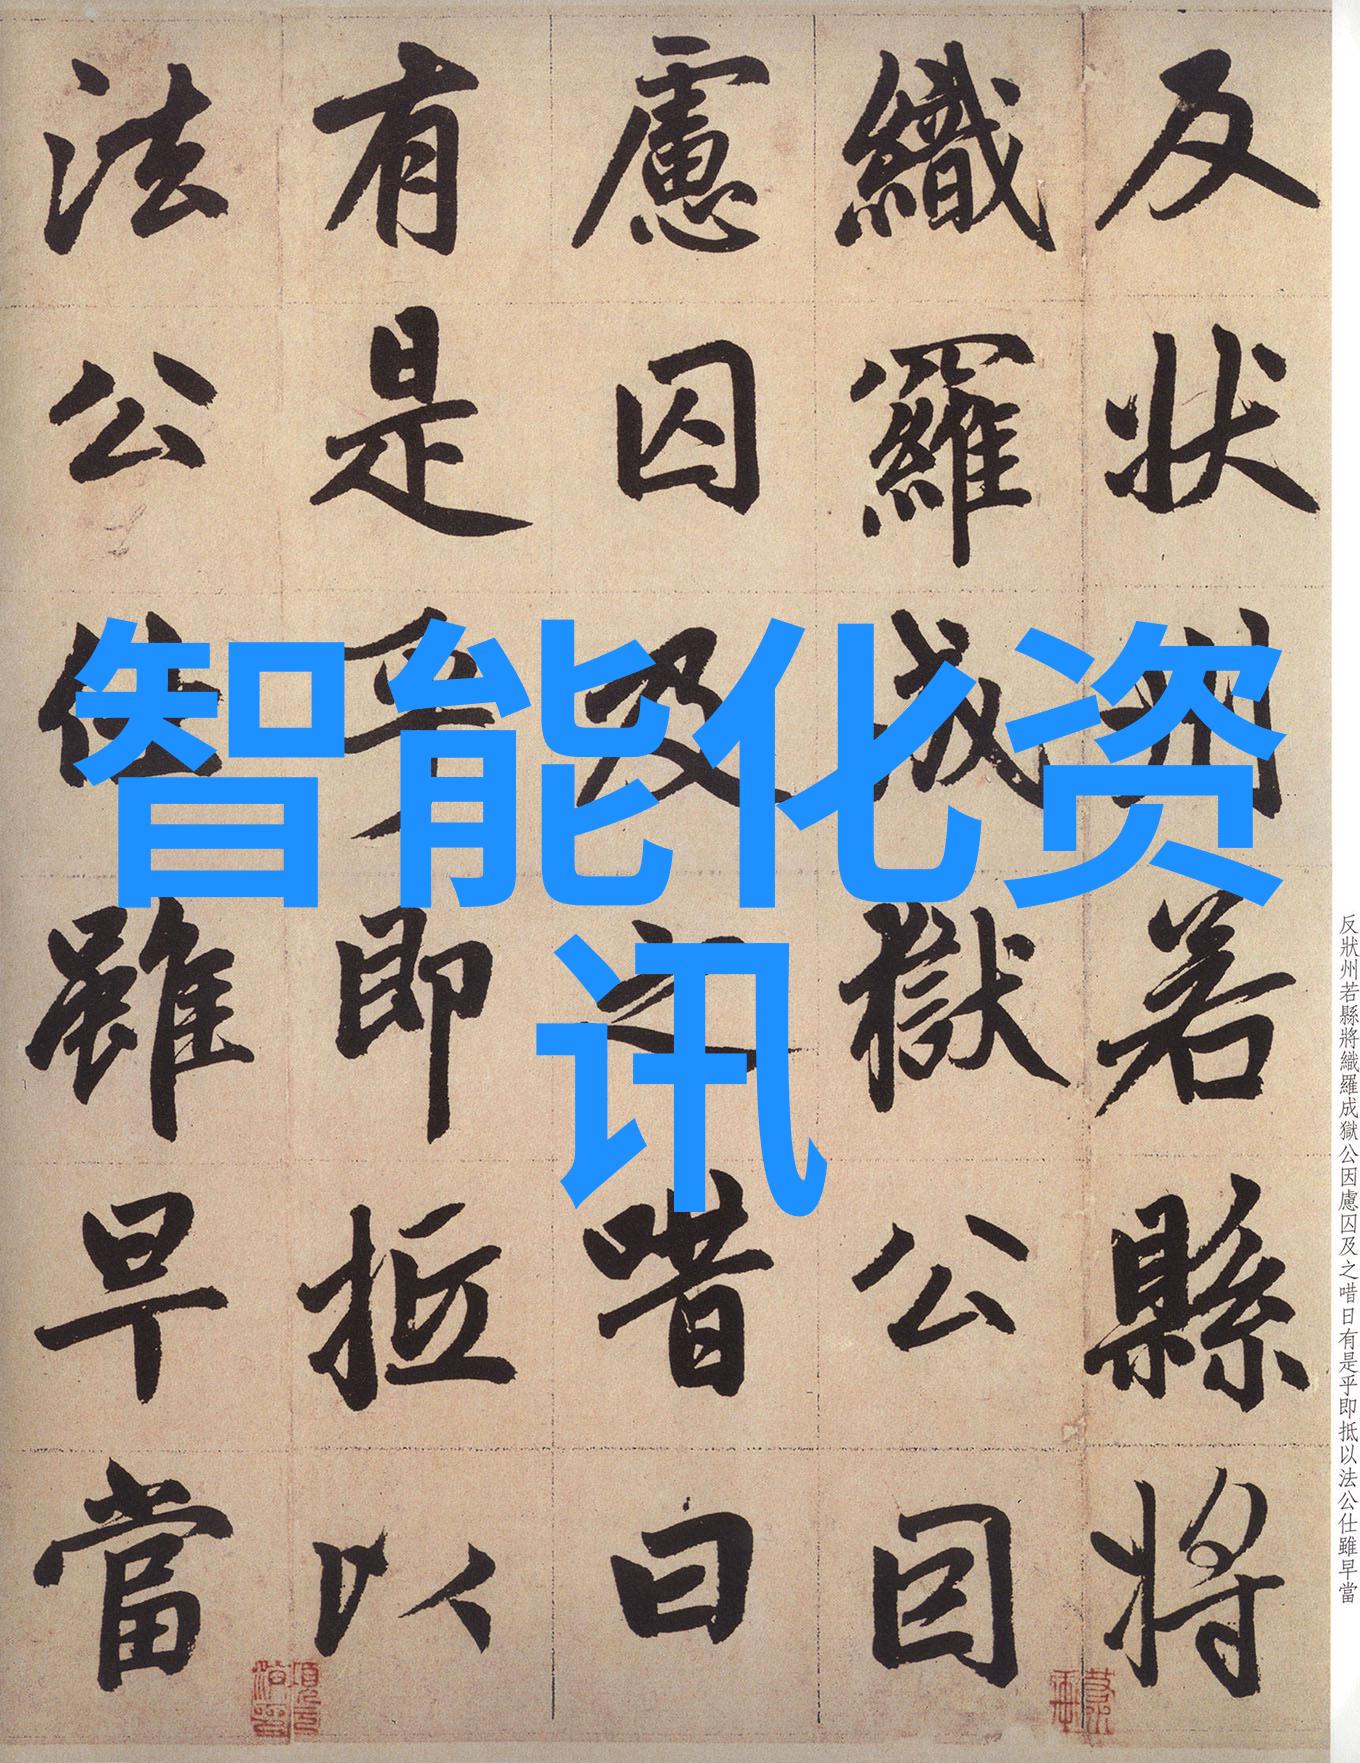 反状州若縣将
織羅成獄公因
慮囚及之唶曰
有是乎即抵以
法公仕雖早當
智能化资
讯
反狀州若縣將織羅成獄公因慮囚及之唶日有是乎即抵以法公仕雖早當